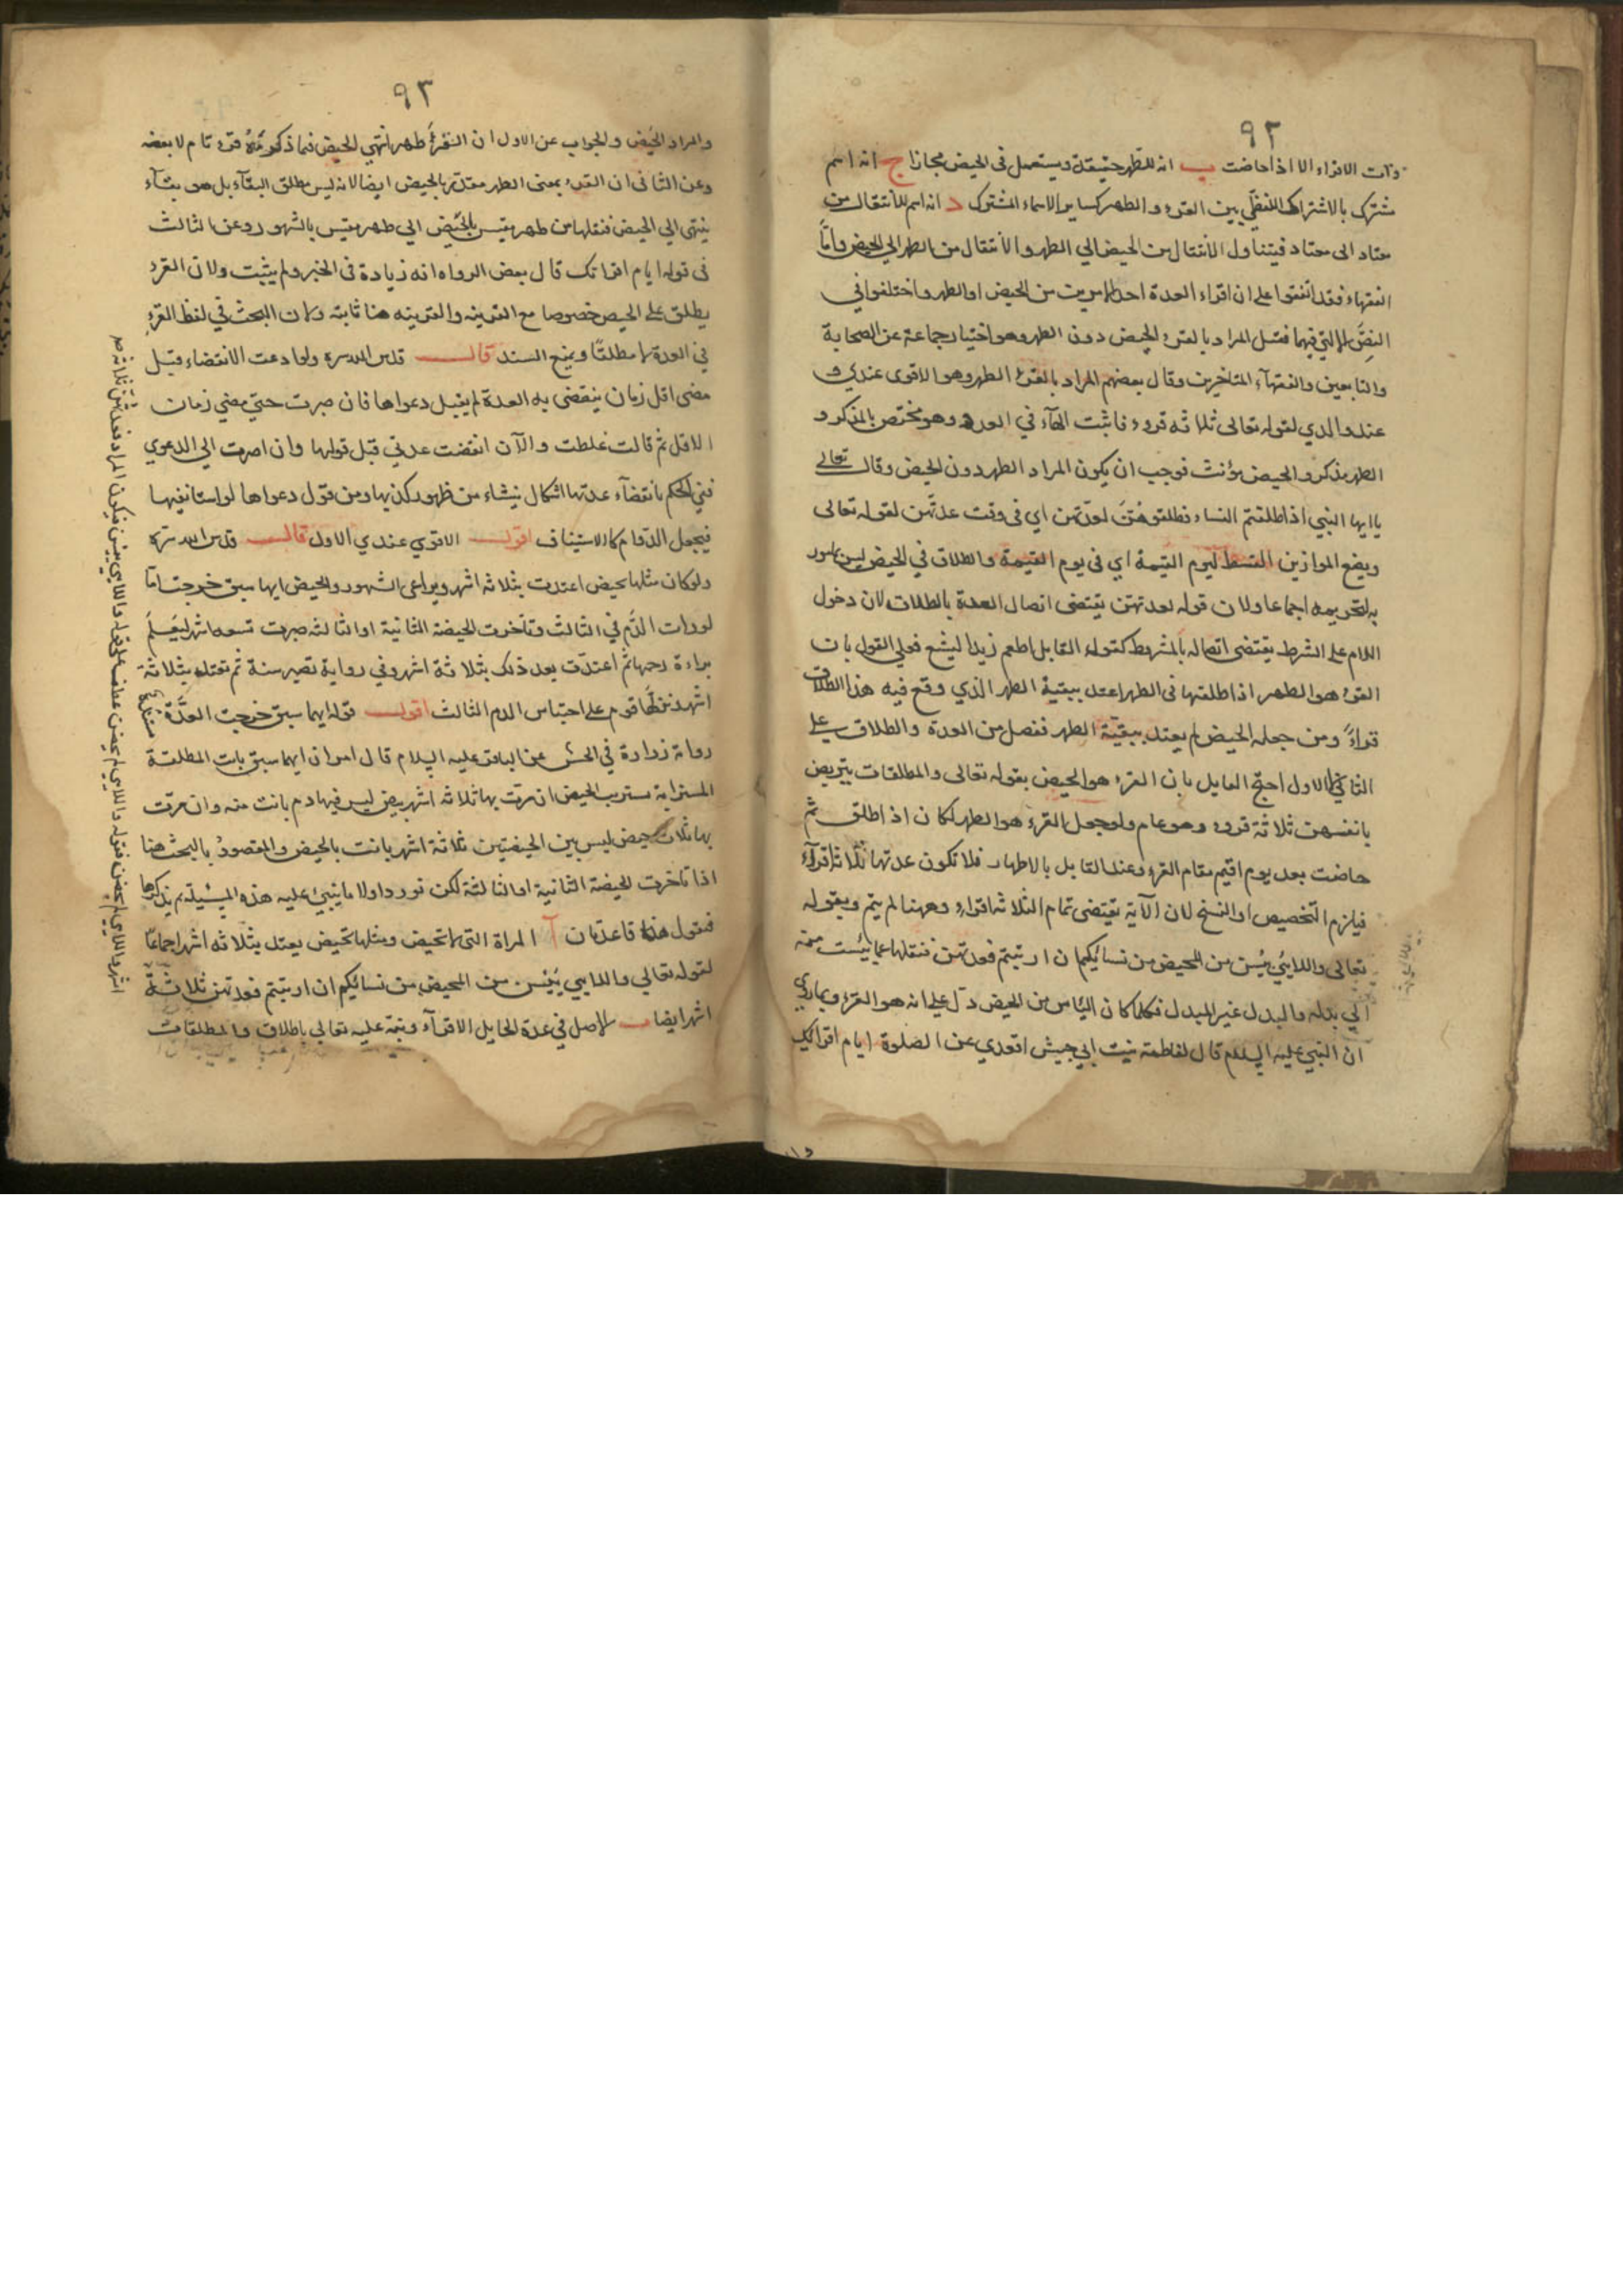 ٩٢
وذات الاقراء الا اذا حاضت ب انه للطهر حقيقة ويستعمل في الحيض مجازا ج انه اسم
مشترك بالاشتراك اللفظي بين القرء والطهر كساير الاسماء المشترك د انه اسم للانتقال من
معتاد الى معتاد فيتناول الانتقال من الحيض الى الطهر والانتقال من الطهر الى الحيض واما
الفقهاء فقد اتفقوا على ان اقراء العدة احد الامرين من الحيض او الطهر واختلفوا في
فقيل المراد بالقرء الحيض دون الطهر وهو اختيار جماعة عن الصحابة
والتابعين والفقهآء المتاخرين وقال بعضهم المراد بالقرء الطهر وهو الاقوى عندي و
عند والدي لقوله تعالى ثلاثه قروء فاثبت الهآء في العدد وهو مختص بالمذكر و
الطهر مذكر والحيض مؤنث فوجب ان يكون المراد الطهر دون الحيض وقال تعالى
ياايها النبي اذا طلقتم النساء فطلقوهن لعدتهن اي في وقت عدتهن لقوله تعالى
ويضع الموازين القسط ليوم القيمة اي في يوم القيمة والطلاق في الحيض ليس بمامور
به لتحريمه اجماعا ولان قوله لعدتهن يقتضى اتصال العدة بالطلاق لان دخول
اللام على الشرط يقتضى اتصاله بالمشروط كقوله القايل اطعم زيدا ليشبع فعلى القول بان
القرء هو الطهر اذا طلقتها في الطهر اعتد ببقية الطهر الذي وقع فيه هذا الطلاق
قراءً ومن جعله الحيض لم يعتد ببقية الطهر ففصل من العدة والطلاق على
الثاني الاول احتج القايل بان القرء هو الحيض بقوله تعالى والمطلقات يتربصن
بانفسهن ثلاثة قروء وهو عام ولو جعل القرء هو الطهر لكان اذا طلق ثم
حاضت بعد يوم اقيم مقام القرء وعند القايل بالاطهار فلا تكون عدتها ثلاثة اقرآء
فيلزم التخصيص او النسخ لان الآية يقتضى تمام الثلاثه اقراء وههنا لم يتم وبقوله
تعالى واللايئ يئسن من المحيض من نسائكم ان ارتبتم فعدتهن فنقلها عما يئست منه
الى بدله والبدل غير المبدل فكلما كان الياس من الحيض دل على انه هو القرء وبماروي
ان النبي عليه السلام قال لفاطمة بنت ابي حبيش اقعدي عن الصلوة ايام اقرائك
٩٣
والمراد الحيض والجواب عن الاول ان القرء طهر انتهى للحيض فما ذكرتموه قرء تام لا بعضه
وعن الثاني ان القرء بمعنى الطهر مقدر بالحيض ايضا لانه ليس مطلق البقآء بل هو بقآء
ينتهى الى الحيض فنقلها من طهر يقيس بالحيض الى طهر يقيس بالشهور وعن الثالث
في قوله ايام اقرائك قال بعض الرواه انه زيادة في الخبر ولم يثبت ولان القرء
يطلق على الحيض خصوصا مع القرينه والقرينه هنا ثابته وكان البحث في لفظ القرء
في العدة لا مطلقًا ويمنع السند قال قدس الله سره ولو ادعت الانقضاء قبل
مضى اقل زمان ينقضى به العدة لم يقبل دعواها فان صبرت حتى مضي زمان
الاقل ثم قالت غلطت والآن انقضت عدتي قبل قولها وان اصرت الى الدعوى
ففي الحكم بانقضآء عدتها اشكال ينشاء من ظهور كذبها ومن قول دعواها لو استانفيها
فيجعل الدوام كالاستيناف اقول الاقوي عندي الاول قال قدس الله سره
ولو كان مثلها يحيض اعتدت بثلاثه اشهر ويراعى الشهور والحيض ايها سبق خرجت اما
لو رات الدم في الثالث وتاخرت الحيضة الثانية او الثالثه صبرت تسعه اشهر ليعلم
براءة رحمها ثم اعتدت بعد ذلك بثلاثة اشهر وفي رواية تصبر سنة ثم تعتد بثلاثة
اشهر ونزلها قوم على احتباس الدم الثالث اقول قوله ايهما سبق خرجت العدة
رواة زرارة في الحسن عن الباقر عليه السلام قال امران ايهما سبق بانت المطلقة
المسترابة تستريب الحيض ان مرت بها ثلاثه اشهر بيض ليس فيها دم بانت منه وان مرت
بها ثلاث حيض ليس بين الحيضتين ثلاثة اشهر بانت بالحيض والمقصود بالبحث هنا
اذا تاخرت الحيضة الثانية او الثالثة لكن نورد اولا ما يبنى عليه هذه المسئيلة ثم يذكرها
فنقول هنا قاعدتان آ المراة التى لا تحيض ومثلها تحيض يعتد بثلاثه اشهر اجماعًا
لقوله تعالى واللايي يئسن من المحيض من نسائكم ان ارتبتم فعدتهن ثلاثة
اشهر ايضا ب الاصل في عدة الحايل الاقرآء ونبه عليه تعالى باطلاق والمطلقات
اشهر واللايي لم يحضن فقوله واللايي لم يحضن عطف على قوله واللايي يئسن فيكون المراد فعدتهن ثلاثة